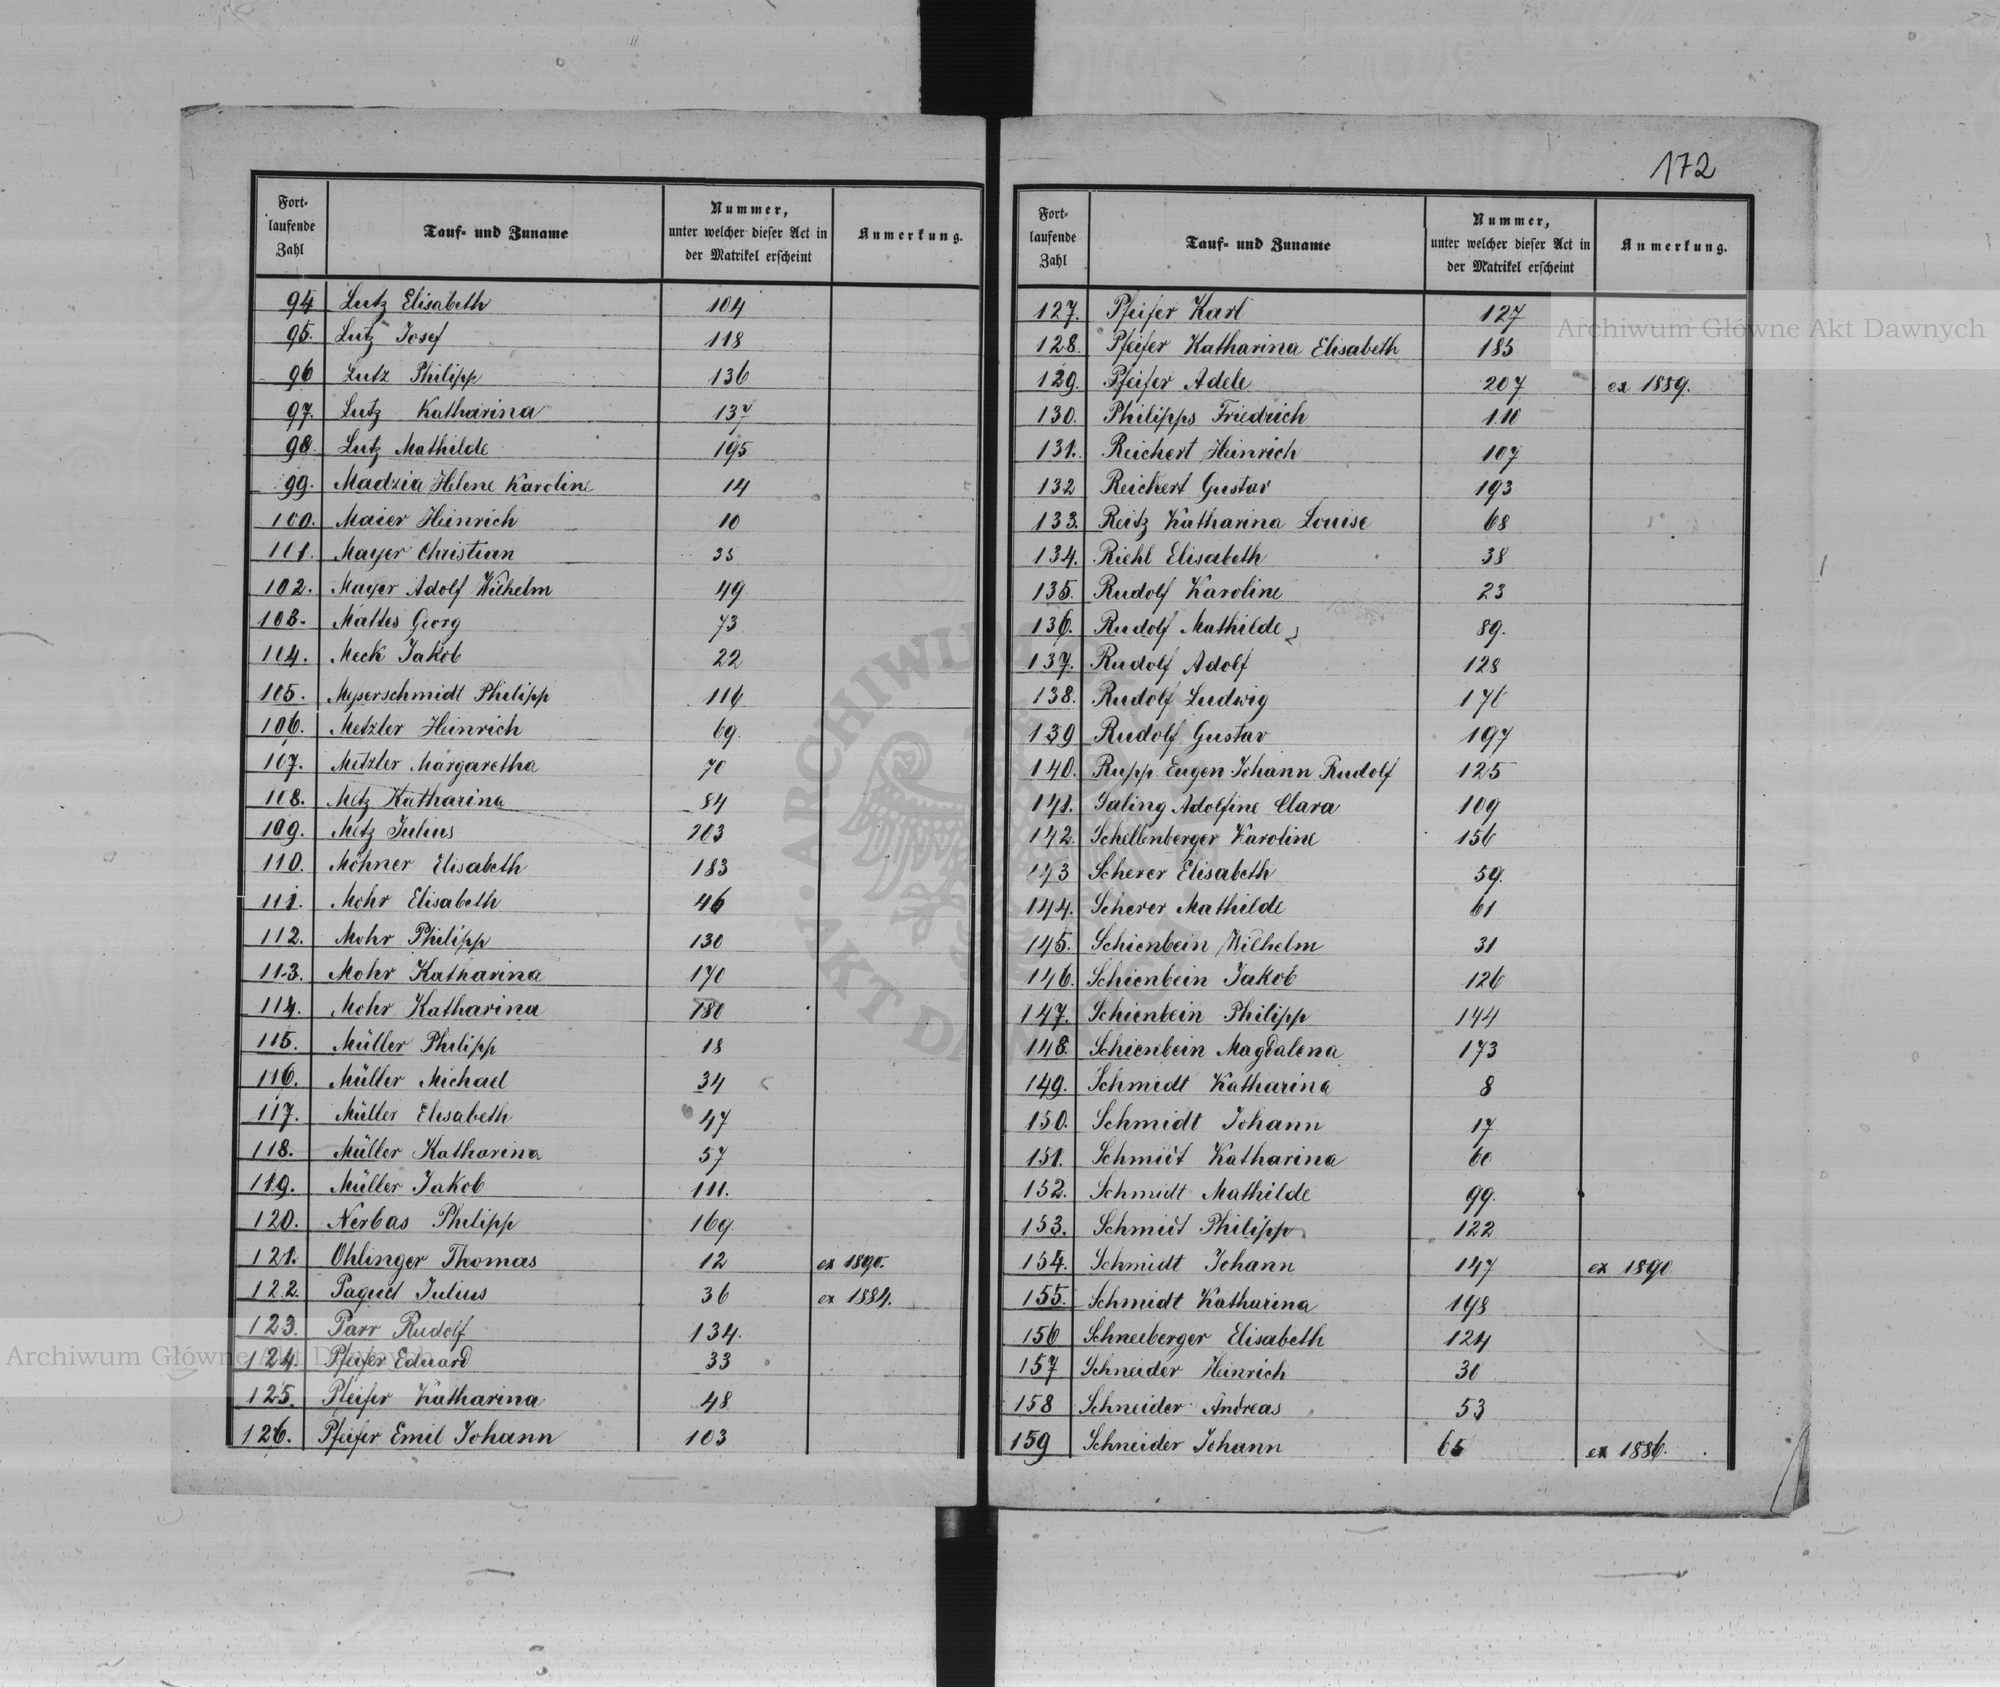 172
Fort-
laufende
Zahl
Tauf- und Zuname
Nummer,
unter welcher dieser Act in
der Matrikel erscheint
Anmerkung.
94 Lutz Elisabeth 104
95. Lutz Josef 118
96 Lutz Philipp 136
97. Lutz Katharina 137
98. Lutz Mathilde 195
99. Madzia Helene Karoline 14
100. Maier Heinrich 10
101. Mayer Christian 35
102. Mayer Adolf Wilhelm 49
103. Mattes Georg 73
104. Meck Jakob 22
105. Philipp 116
106. Metzler Heinrich 69.
107. Metzler Margaretha 70
108. Metz Katharina 84
109. Metz Julius 203
110. Möhner Elisabeth 183
111. Mohr Elisabeth 46
112. Mohr Philipp 130
113. Mohr Katharina 170
114. Mohr Katharina 180
115. Müller Philipp 18
116. Müller Michael 34
117. Müller Elisabeth 47
118. Müller Katharina 57
119. Müller Jakob 111.
120. Nerbas Philipp 169.
121. Ohlinger Thomas 12 ex 1890.
122. Paquet Julius 36 ex 1884.
123. Parr Rudolf 134.
124. Pfeifer Eduard 33
125. Pfeifer Katharina 48
126. Pfeifer Emil Johann 103
Fort-
laufende
Zahl
Tauf- und Zuname
Nummer,
unter welcher dieser Act in
der Matrikel erscheint
Anmerkung.
127. Pfeifer Karl 127
128. Pfeifer Katharina Elisabeth 185
129. Pfeifer Adele 207 ex 1889.
130. Philipps Friedrich 110
131. Reichert Heinrich 107
132 Reichert Gustav 193
133. Reitz Katharina Louise 68
134. Riehl Elisabeth 38
135. Rudolf Karoline 23
136. Rudolf Mathilde 89.
137. Rudolf Adolf 128
138. Rudolf Ludwig 176
139 Rudolf Gustav 197
140. Rupp Eugen Johann Rudolf 125
141. Saling Adolfine Clara 109
142. Schellenberger Karoline 156
143 Scherer Elisabeth 59.
144. Scherer Mathilde 61
145. Schienbein Wilhelm 31
146. Schienbein Jakob 126
147. Schienbein Philipp 144
148. Schienbein Magdalena 173
149. Schmidt Katharina 8
150. Schmidt Johann 17
151. Schmidt Katharina 60
152. Schmidt Mathilde 99.
153. Schmidt Philipp 122
154. Schmidt Johann 147 ex 1890.
155. Schmidt Katharina 198
156 Schneeberger Elisabeth 124
157 Schneider Heinrich 30
158 Schneider Andreas 53
159 Schneider Johann 65 ex 1886.
Archiwum Główne Akt Dawnych
Archiwum Główne Akt Dawnych